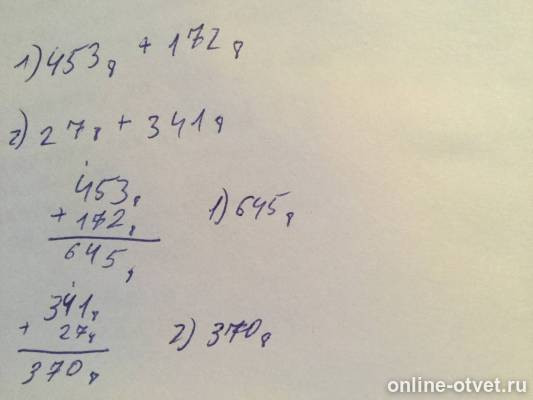 1) 453₈ + 172₈
2) 27₈ + 341₈
453₈
+ 172₈
645₈
1) 645₈
341₈
+ 27₈
370₈
2) 370₈
online-otvet.ru